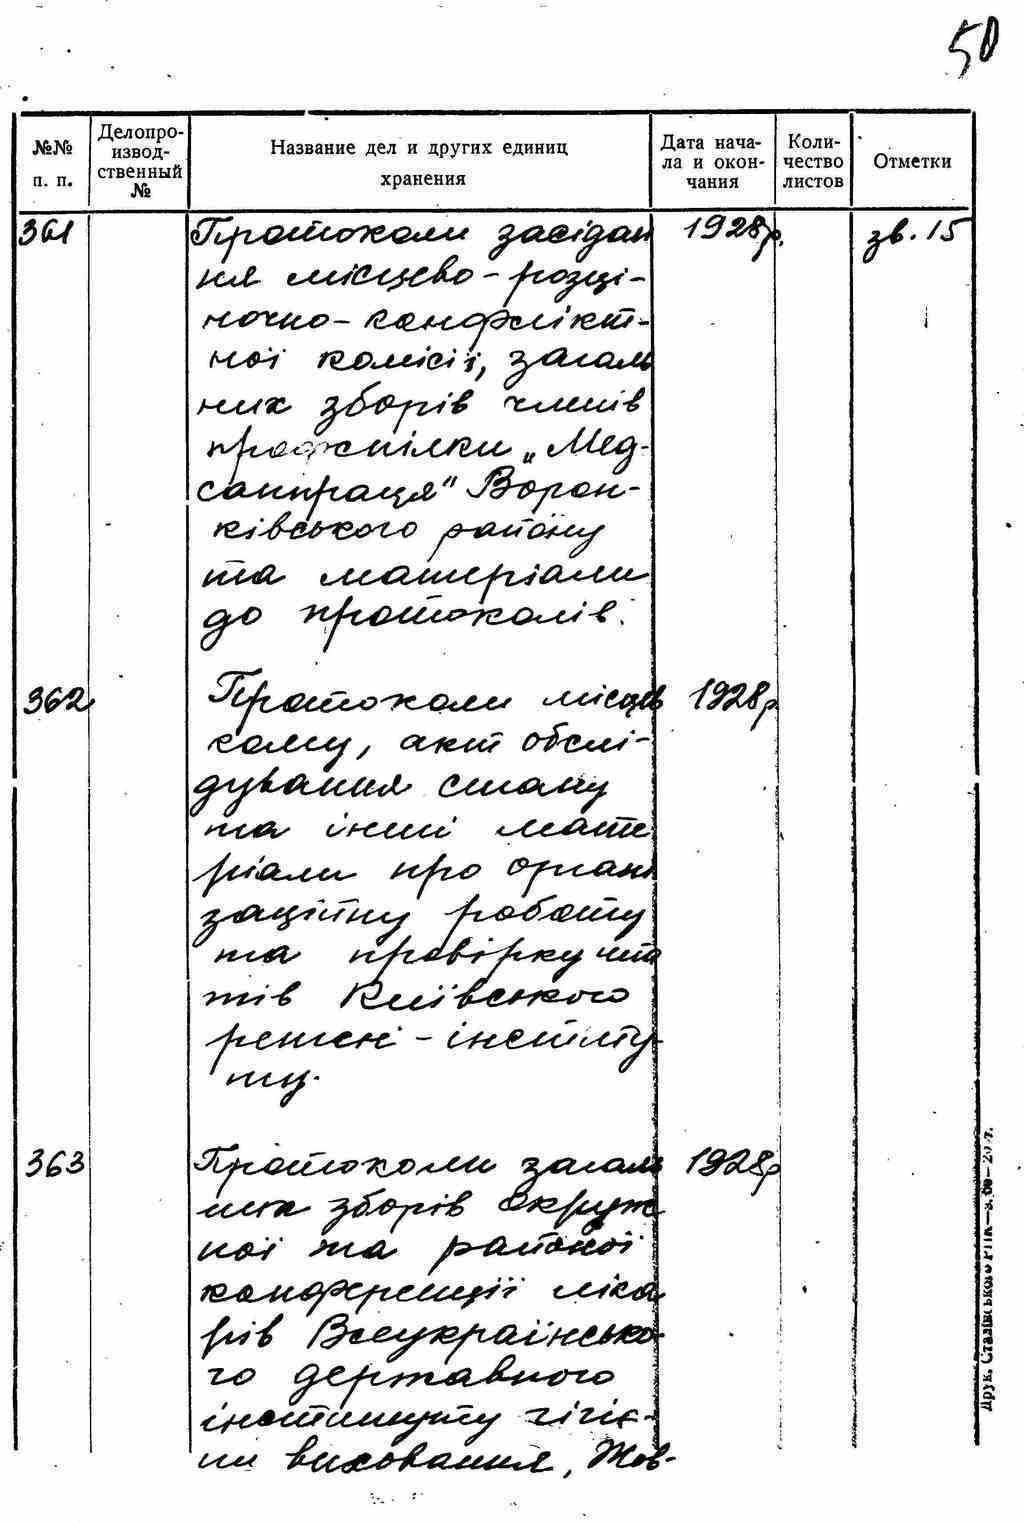 50
№№ п. п.
Делопро-
извод-
ственный
№
Название дел и других единиц
хранения
Дата нача-
ла и окон-
чания
Коли-
чество
листов
Отметки
361 Протоколи засідан 1928р. зв. 15
ня місцево-розці-
ночно-конфлікт-
ної комісії, загаль
них зборів членів
профспілки „Мед-
санпраця" Ворон-
ківського району
та матеріали
до протоколів.
362 Протоколи місцев 1928р.
кому, акт обслі-
дування стану
та інші мате
ріали про органі
заційну роботу
та провірку шта
тів Київського
рентгені-інститу-
ту.
363 Протоколи загаль 1928р
них зборів окруж
ної та районої
конференції ліка
рів Всеукраїнсько-
го державного
інституту гігіє-
ни виховання, Жов-
Друк. Сталінського РПК—з.